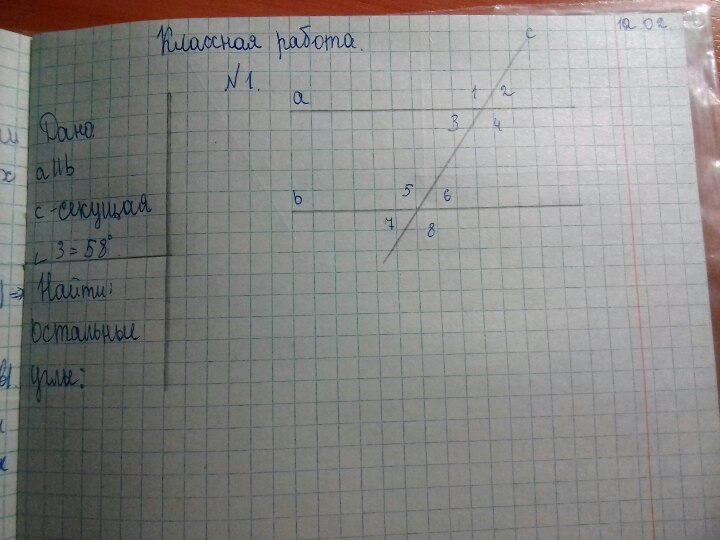 12.02
Классная работа.
N1.
Дано
a || b
c - секущая
∠3=58°.
Найти:
остальные
углы:
c
a
1 2
3 4
b
5 6
7 8